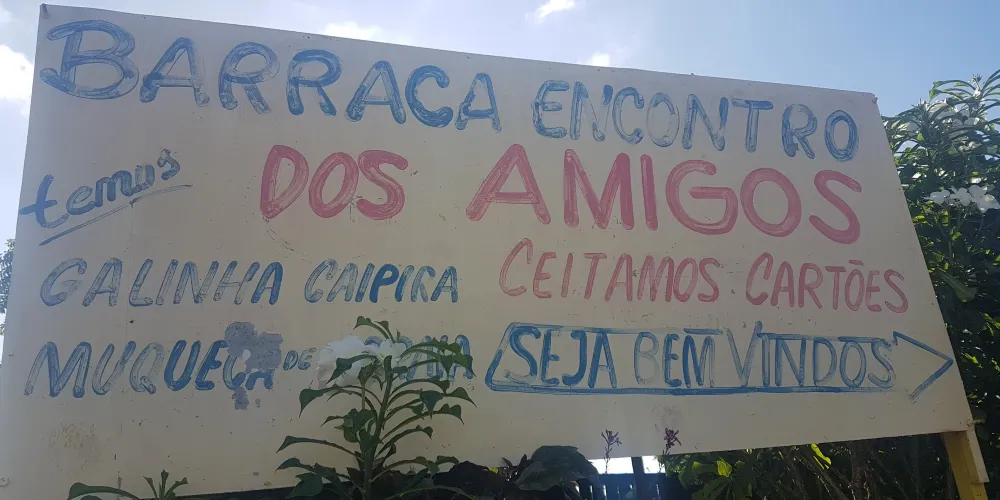 BARRACA ENCONTRO
DOS AMIGOS
temos
GALINHA CAIPIRA
CEITAMOS CARTÕES
MUQUECA DE
SEJA BEM VINDOS